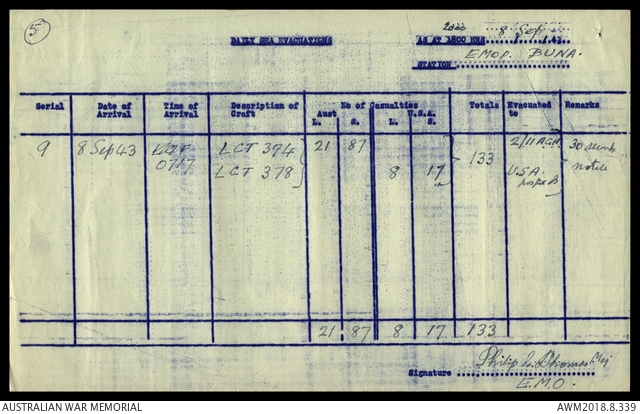 5
DAILY SEA EVACUATIONS
2000 8 Sep
AS AT 1800 HRS ....../...../43.
EMOP. BUNA.
STATION
Serial Date of Arrival Time of Arrival Description of Craft No of Casualties Totals Evacuated to Remarks
Aust U.S.A.
L. S. L. S.
9 8 Sep 43 0717 LCT 374 21 87 133 2/11 AGH 30
LCT 378 8 17 U.S.A. notice
21 87 8 17 133
Philip L. Thomas Maj
Signature
E.M.O.
AUSTRALIAN WAR MEMORIAL
AWM2018.8.339